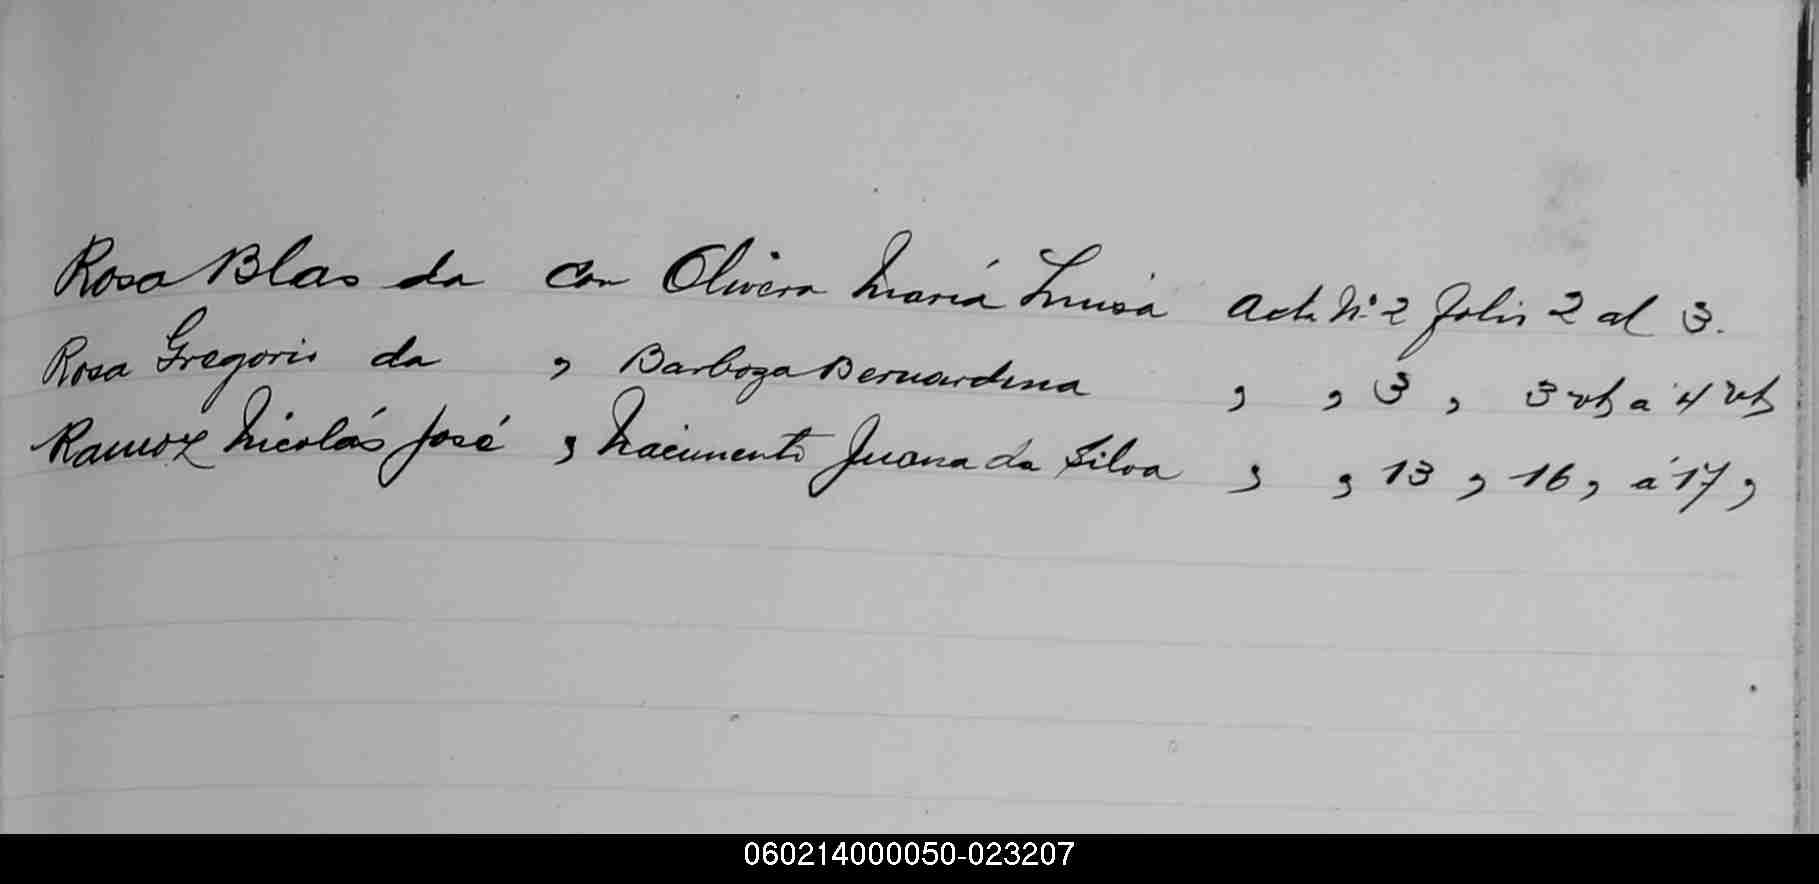 Rosa Blas da con Olivera María Luisa Acta Nº 2 folio 2 al 3.
Rosa Gregorio da , Barboza Bernardina , , 3 , 3 vtº a 4 vtº
Ramoz Nicolás José , Nacimento Juana da Silva , , 13 , 16 , á 17 ,
060214000050-023207